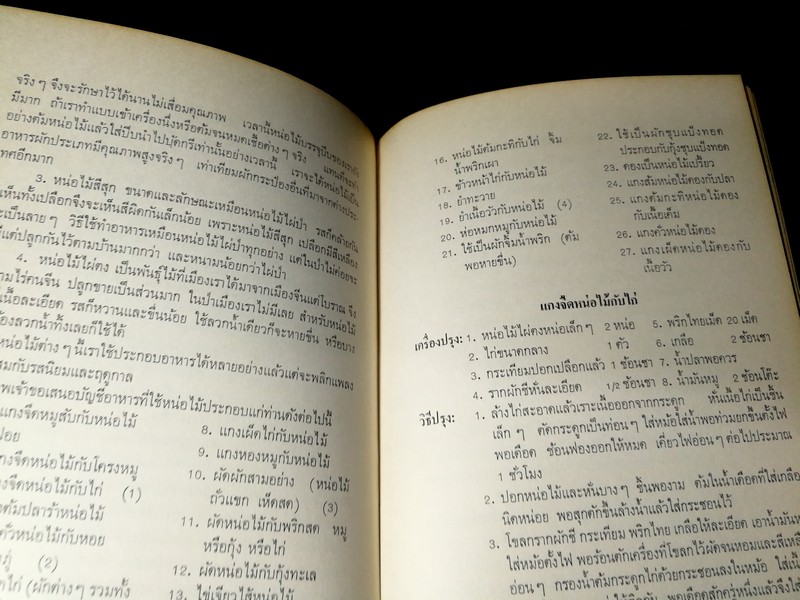 จริง ๆ จึงจะรักษาไว้ได้นานไม่เสื่อมคุณภาพ เวลานี้หน่อไม้บรรจุปีบของเรายัง
มีมาก ถ้าเราทำแบบเข้าเครื่องนึ่งหรือต้มจนหมดเชื้อต่าง ๆ จริง แทนที่จะทำ
อย่างต้มหน่อไม้แล้วใส่ปีบนำไปบัดกรีเท่านั้นอย่างเวลานี้ เราจะได้หน่อไม้เป็น
อาหารผักประเภทมีคุณภาพสูงจริง ๆ เท่าเทียมผักกระป๋องอื่นที่มาจากต่างประ
เทศอีกมาก
3. หน่อไม้สีสุก ขนาดและลักษณะเหมือนหน่อไม้ไผ่ป่า รสก็คล้ายกัน
เห็นทั้งเปลือกจึงจะเห็นสีผิดกันเล็กน้อย เพราะหน่อไม้สีสุก เปลือกมีสีเหลือง
ะเป็นลาย ๆ วิธีใช้ทำอาหารเหมือนหน่อไม้ไผ่ป่าทุกอย่าง แต่ในป่าไม่ค่อยจะ
มีแต่ปลูกกันไว้ตามบ้านมากกว่า และหนามน้อยกว่าไผ่ป่า
4. หน่อไม้ไผ่ตง เป็นพันธุ์ไม้ที่เมืองเราได้มาจากเมืองจีนแต่โบราณ จึง
ามไร่คนจีน ปลูกขายเป็นส่วนมาก ในป่าเมืองเราไม่มีเลย สำหรับหน่อไม้
เนื้อละเอียด รสก็หวานและขื่นน้อย ใช้ลวกน้ำเดียวก็จะหายขื่น หรือบาง
้องลวกน้ำทิ้งเลยก็ใช้ได้
หน่อไม้ต่าง ๆ นี้เราใช้ประกอบอาหารได้หลายอย่างแล้วแต่จะพลิกแพลง
สมกับรสนิยมและฤดูกาล
พเจ้าขอเสนอบัญชีอาหารที่ใช้หน่อไม้ประกอบแก่ท่านดังต่อไปนี้
แกงจืดหมูสับกับหน่อไม้
ฝอย
กงจืดหน่อไม้กับโครงหมู
งจืดหน่อไม้กับไก่ (1)
ต้มปลาร้าหน่อไม้
คั่วหน่อไม้กับหอย
(2)
ไก่ (ผักต่าง ๆ รวมทั้ง
8. แกงเผ็ดไก่กับหน่อไม้
9. แกงหองหมูกับหน่อไม้
10. ผัดผักสามอย่าง (หน่อไม้
ถั่วแขก เห็ดสด) (3)
11. ผัดหน่อไม้กับพริกสด หมู
หรือกุ้ง หรือไก่
12. ผัดหน่อไม้กับกุ้งทะเล
13. ไข่เจียวไส้หน่อไม้
16. หน่อไม้ต้มกะทิกับไก่ จิ้ม
น้ำพริกเผา
17. ข้าวหน้าไก่กับหน่อไม้
18. ยำทะวาย
19. ยำเนื้อวัวกับหน่อไม้ (4)
20. ห่อหมกหมูกับหน่อไม้
21. ใช้เป็นผักจิ้มน้ำพริก (ต้ม
พอหายขื่น)
22. ใช้เป็นผักชุบแป้งทอด
ประกอบกับกุ้งชุบแป้งทอด
23. ดองเป็นหน่อไม้เปรี้ยว
24. แกงส้มหน่อไม้ดองกับปลา
25. แกงต้มกะทิหน่อไม้ดอง
กับเนื้อเค็ม
26. แกงคั่วหน่อไม้ดอง
27. แกงเผ็ดหน่อไม้ดองกับ
เนื้อวัว
แกงจืดหน่อไม้กับไก่
เครื่องปรุง: 1. หน่อไม้ไผ่ตงหน่อเล็ก ๆ 2 หน่อ 5. พริกไทยเม็ด 20 เม็ด
2. ไก่ขนาดกลาง 1 ตัว 6. เกลือ 2 ช้อนชา
3. กระเทียมปอกเปลือกแล้ว 1 ช้อนชา 7. น้ำปลาพอควร
4. รากผักชีหั่นละเอียด 1/2 ช้อนชา 8. น้ำมันหมู 2 ช้อนโต๊ะ
วิธีปรุง: 1. ล้างไก่สะอาดแล้วเราะเนื้อออกจากกระดูก หั่นเนื้อไก่เป็นชิ้น
เล็ก ๆ ตัดกระดูกเป็นท่อน ๆ ใส่หม้อใส่น้ำพอท่วมยกขึ้นตั้งไฟ
พอเดือด ช้อนฟองออกให้หมด เคี่ยวไฟอ่อน ๆ ต่อไปประมาณ
1 ชั่วโมง
2. ปอกหน่อไม้และหั่นบาง ๆ ชิ้นพองาม ต้มในน้ำเดือดที่ใส่เกลือ
นิดหน่อย พอสุกตักขึ้นล้างน้ำแล้วใส่กระชอนไว้
3. โขลกรากผักชี กระเทียม พริกไทย เกลือให้ละเอียด เอาน้ำมันห
ใส่หม้อตั้งไฟ พอร้อนตักเครื่องที่โขลกไว้ผัดจนหอมและสีเหลื
อ่อน ๆ กรองน้ำต้มกระดูกไก่ด้วยกระชอนลงในหม้อ ใส่เนื้
พอเดือดสักครู่หนึ่งแล้วจึงใส่